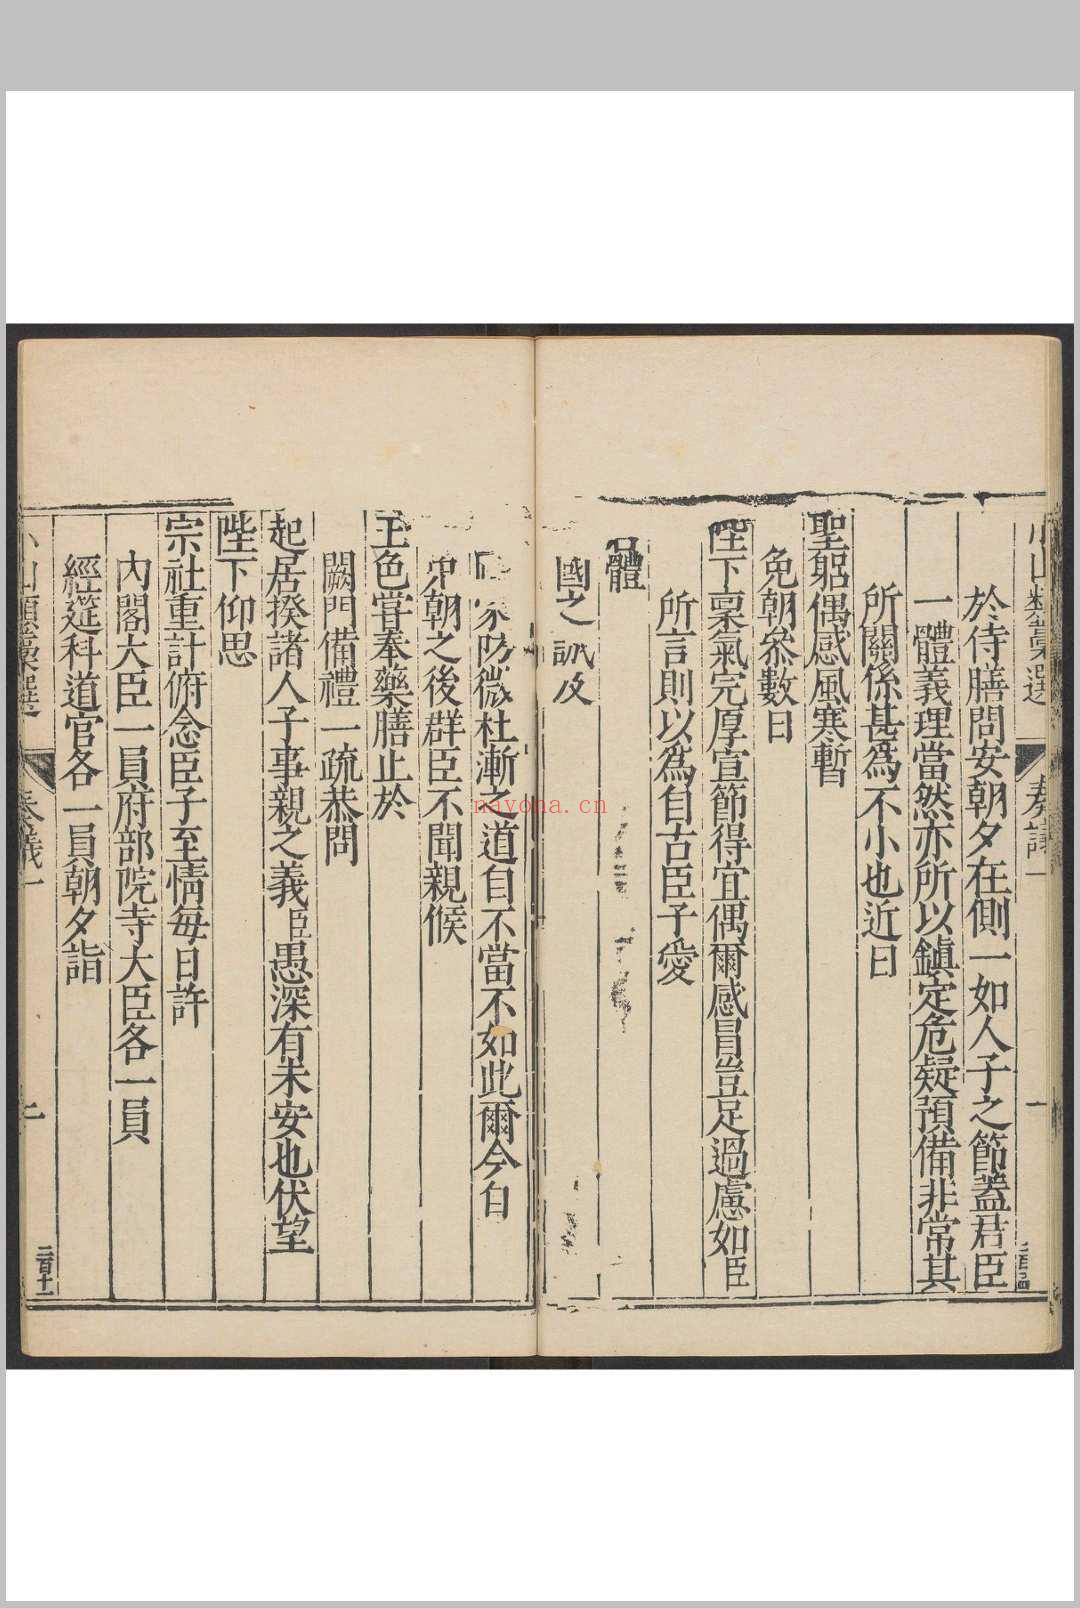 小山類藁選
奏議一
於侍膳問安朝夕在側一如人子之節蓋君臣
一體義理當然亦所以鎮定危疑預備非常其
所關係甚爲不小也近日
聖躬偶感風寒暫
免朝叅數日
陛下稟氣完厚宣節得宜偶爾感冒豈足過慮如臣
所言則以爲自古臣子愛
體
國之 及
家防微杜漸之道自不當不如此爾今自
朝之後群臣不聞親候
玉色嘗奉藥膳止於
闕門備禮一疏恭問
起居揆諸人子事親之義臣愚深有未安也伏望
陛下仰思
宗社重計俯念臣子至情每日許
內閣大臣一員府部院寺大臣各一員
經筵科道官各一員朝夕詣
小山類藁選
奏議一
二百十一
nayona.cn